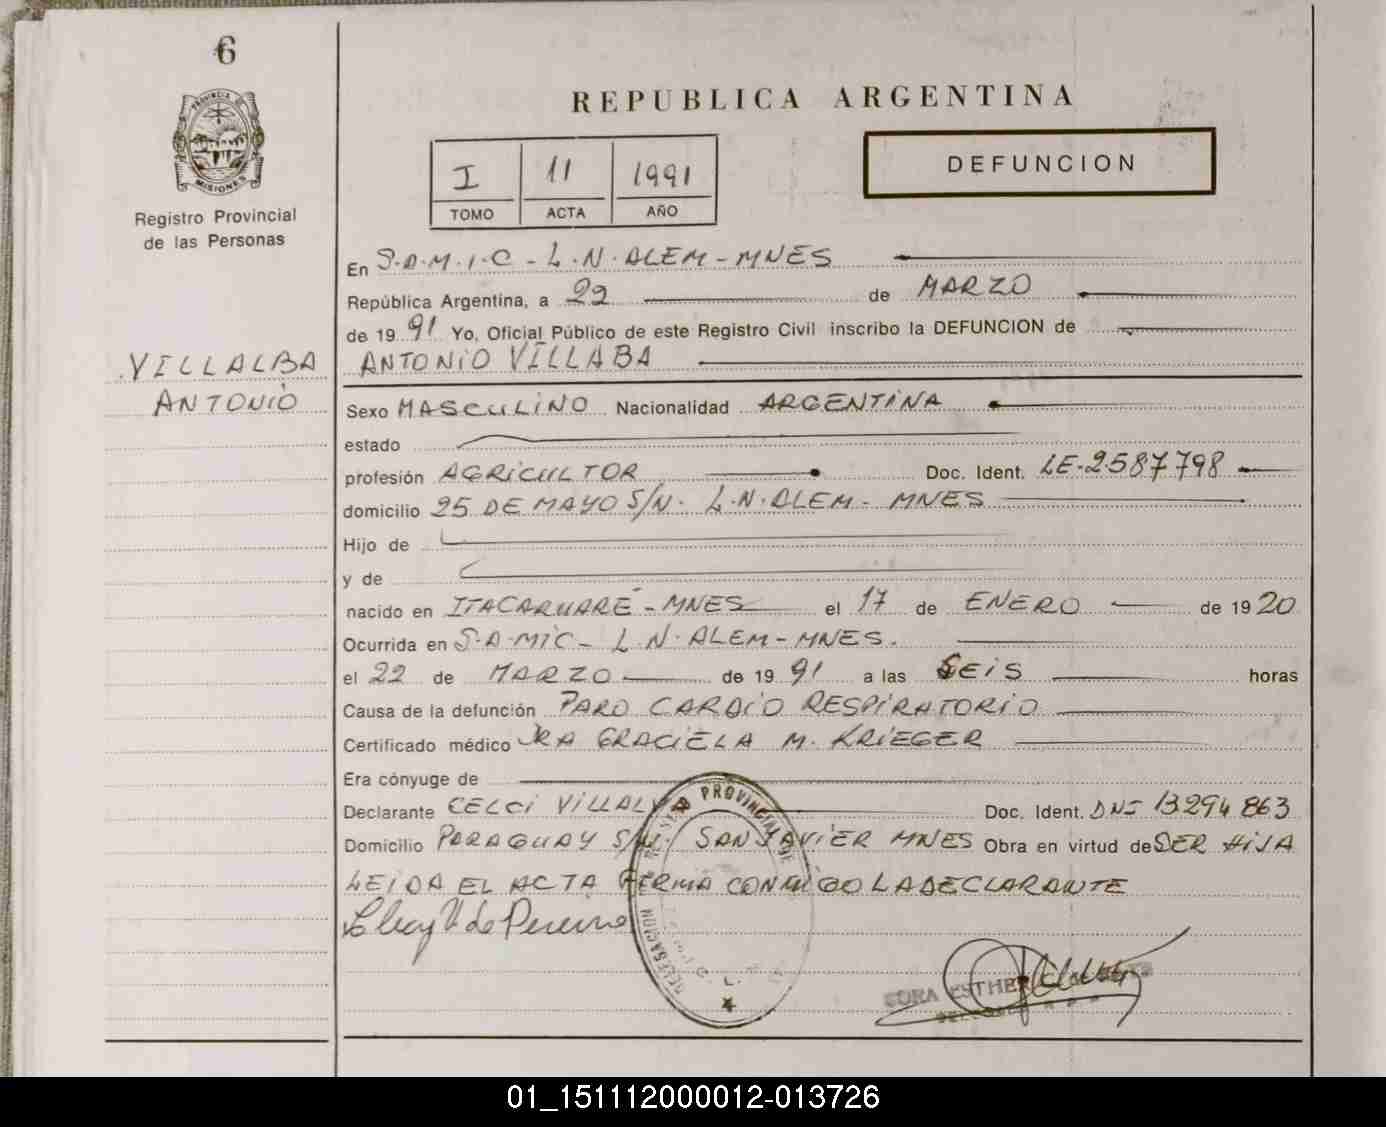 6
PROVINCIA DE
MISIONES
Registro Provincial
de las Personas
VILLALBA
ANTONIO
REPUBLICA ARGENTINA
I 11 1991
TOMO ACTA AÑO
DEFUNCION
En S.A.M.I.C - L.N. ALEM - MNES
República Argentina, a 22 de MARZO
de 19 91 Yo, Oficial Público de este Registro Civil inscribo la DEFUNCION de
ANTONIO VILLABA
Sexo MASCULINO Nacionalidad ARGENTINA
estado
profesión AGRICULTOR Doc. Ident. LE-2587798
domicilio 25 DE MAYO S/N. L.N. ALEM - MNES
Hijo de
y de
nacido en ITACARUARÉ - MNES el 17 de ENERO de 19 20
Ocurrida en S.A.MIC - L.N. ALEM - MNES.
el 22 de MARZO de 19 91 a las SEIS horas
Causa de la defunción PARO CARDIO RESPIRATORIO
Certificado médico DRA GRACIELA M. KRIEGER
Era cónyuge de
Declarante CELCI Doc. Ident. DNI 13294863
Domicilio PARAGUAY S/N. SAN JAVIER MNES Obra en virtud de SER HIJA
LEIDA EL ACTA FIRMA CONMIGO LA DECLARANTE
PROVINCIAL DE
DELEGACION
ESTHER
01_151112000012-013726